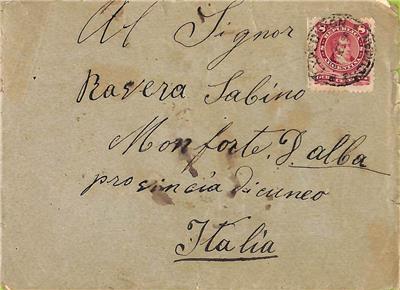 Al Signor
Ravera Sabino
Monforte D'alba
provincia di cuneo
Italia